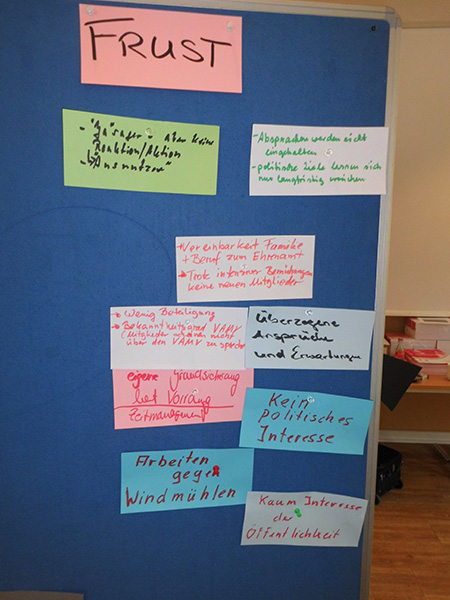 FRUST
- "Ja"sager - aber keine
Reaktion/Aktion
- "Ausnutzer"
- Absprachen werden nicht
eingehalten
- politische Ziele lassen sich
nur langfristig erreichen
Vereinbarkeit Familie
+ Beruf zum Ehrenamt
Trotz intensiver Bemühungen
keine neuen Mitglieder
Wenig Beteiligung
Bekanntheitsgrad VAMV
(Mitglieder nicht
über den VAMV zu sprechen
Überzogene
Ansprüche
und Erwartungen
eigene Grundsicherung
hat Vorrang
Zeitmanagement
Kein
politisches
Interesse
Arbeiten
gegen
Windmühlen
Kaum Interesse
der
Öffentlichkeit